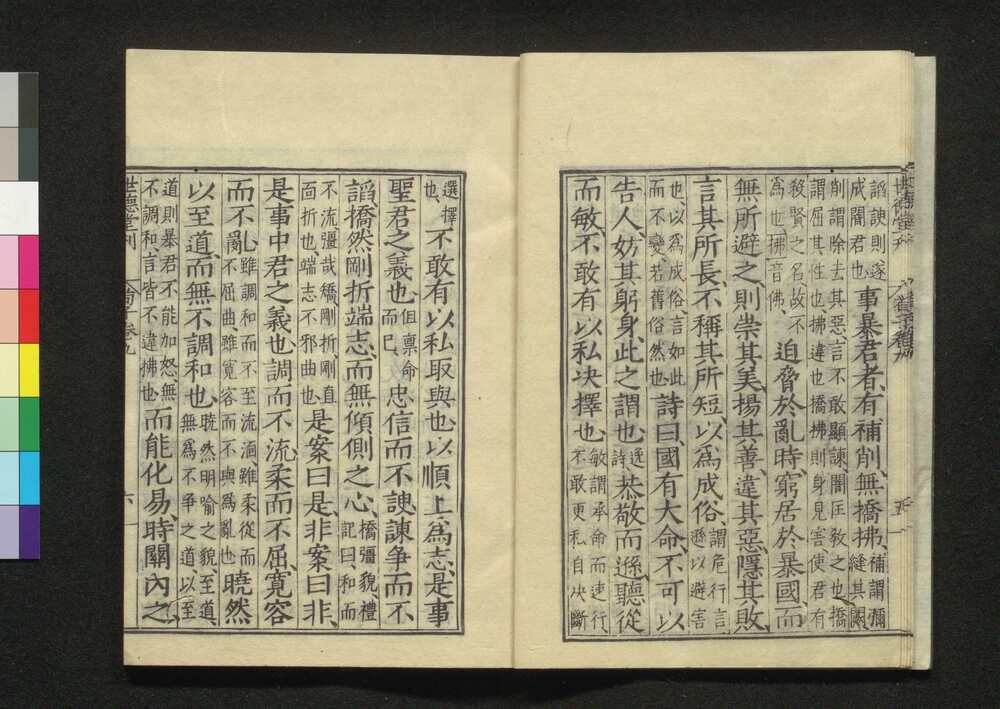 諂諛則遂
成闇君也
事暴君者、有補削、無橋拂、
補謂彌
縫其闕
削謂除去其惡、言不敢顯諫、闇匡救之也、橋
謂屈其性也、拂違也、橋拂則身見害、使君有
殺賢之名、故不
爲也、拂音佛、
迫脅於亂時、窮居於暴國、而
無所避之、則崇其美、揚其善、違其惡、隱其敗、
言其所長、不稱其所短、以爲成俗、
謂危行言
遜以避害
也、以爲成俗、言如此
而不變、若舊俗然也、
詩曰、國有大命、不可以
告人、妨其躬身、此之謂也、
逸
詩
恭敬而遜、聽從
而敏、不敢有以私决擇也、
敏謂承命而速行、
不敢更私自决斷
選擇
也、
不敢有以私取與也、以順上爲志、是事
聖君之義也、
但禀命
而已、
忠信而不諛、諫爭而不
諂、橋然剛折端志、而無傾側之心、
橋彊貌、禮
記曰、和而
不流、彊哉矯、剛折、剛直
面折也、端志不邪曲也、
是案曰是、非案曰非、
是事中君之義也、調而不流、柔而不屈、寬容
而不亂、
雖調和而不至流湎、雖柔從而
不屈曲、雖寬容而不與爲亂也、
曉然
以至道、而無不調和也、
曉然明喻之貌、至道、
無爲不爭之道、以至
道則暴君不能加怒、無
不調和、言皆不違拂也、
而能化易、時關內之、
世德堂刊
荀子卷九
六